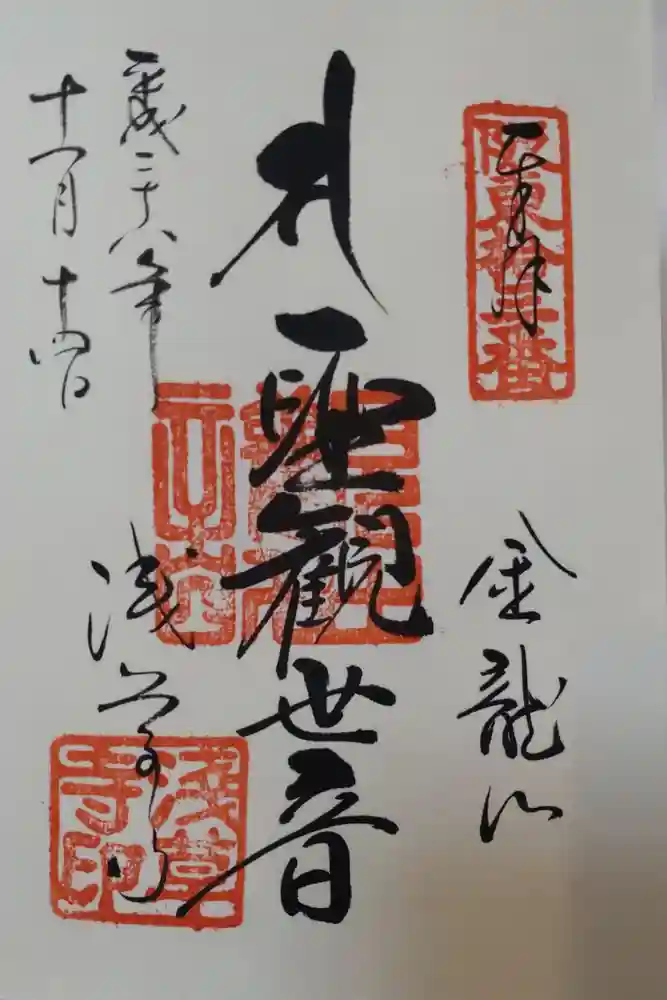 坂東拾三番
奉拝
金龍山
聖觀世音
浅草寺
浅草寺印
平成二十八年
十一月十四日